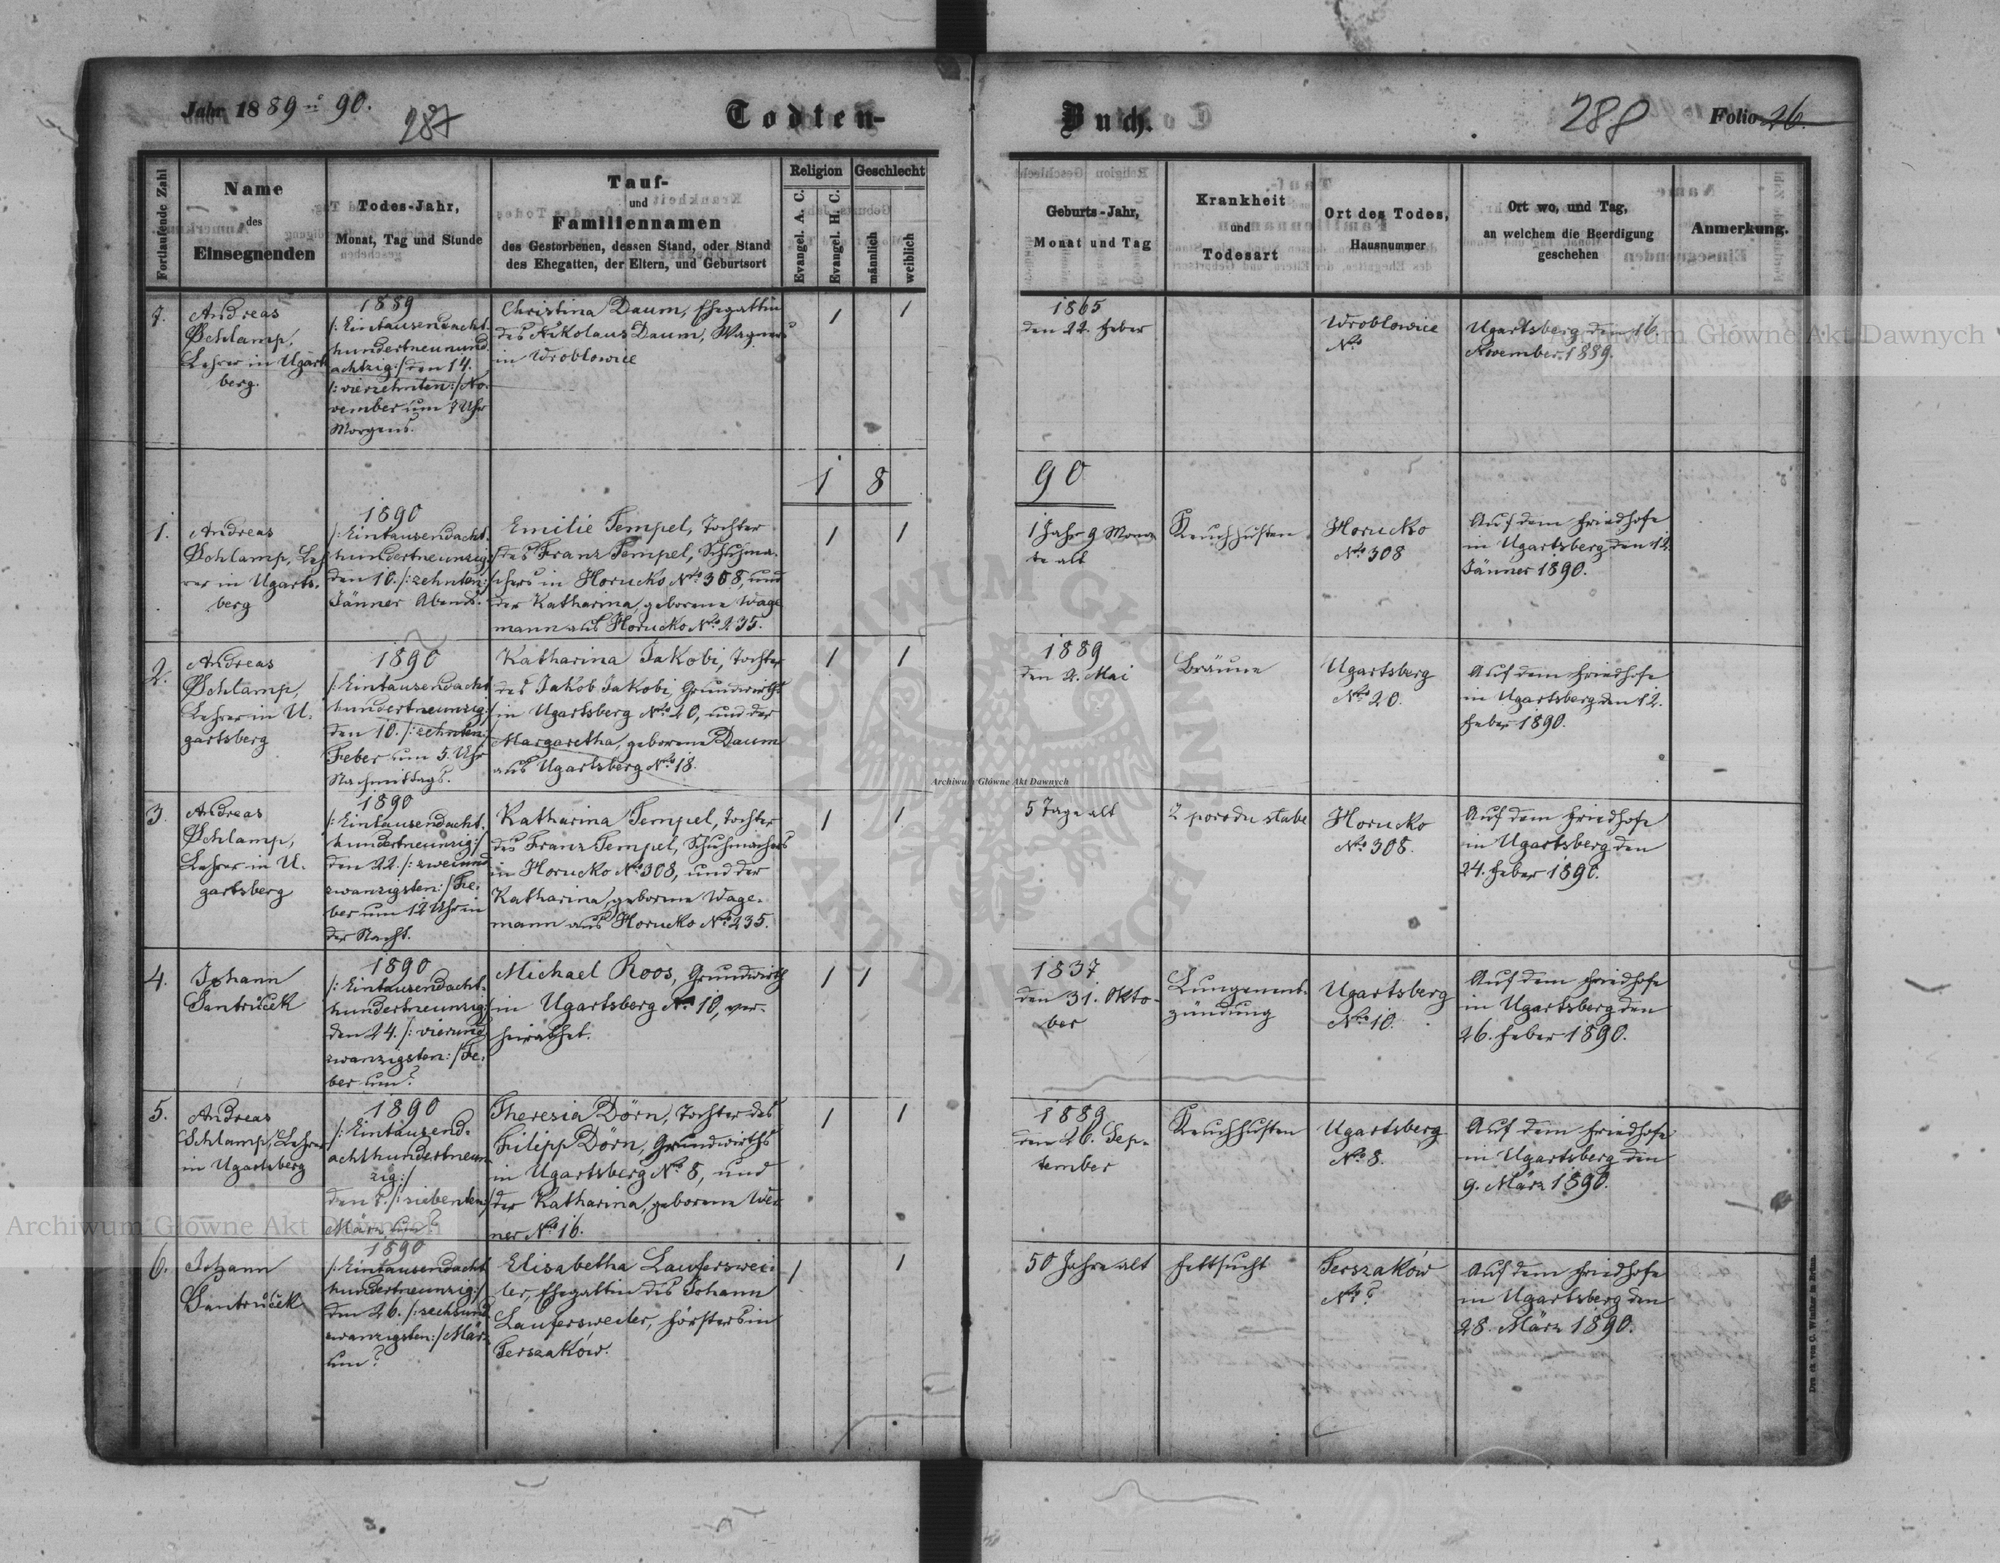 Jahr 1889 u 90.
287
Todten-
Buch.
288
Folio 26.
Fortlaufende Zahl
Name
des
Einsegnenden
Todes-Jahr,
Monat, Tag und Stunde
Tauf-
und
Familiennamen
des Gestorbenen, dessen Stand, oder Stand
des Ehegatten, der Eltern, und Geburtsort
Religion
Evangel. A. C.
Evangel. H. C.
Geschlecht
männlich
weiblich
Geburts-Jahr,
Monat und Tag
Krankheit
und
Todesart
Ort des Todes,
Hausnummer
Ort wo, und Tag,
an welchem die Beerdigung
geschehen
Anmerkung.
7.
Andreas
Schlamp,
Lehrer in Ugarts
berg.
1889
/: Eintausendacht
hundertneunund
achtzig :/ den 14.
/: vierzehnten :/ No-
vember um 7 Uhr
Morgens.
Christina Daum, Ehegattin
des Nikolaus Daum, Wagners
in Wroblowice
1
1
1865
den 22. Feber
Wroblowice
No
Ugartsberg den 16.
November 1889.
1 8
90
1.
Andreas
Schlamp, Leh
rer in Ugarts-
berg
1890
/: Eintausendacht-
hundertneunzig :/
den 10. /: zehnten :/
Jänner Abends.
Emilie Tempel, Tochter
des Franz Tempel, Schuhma-
chers in Horucko No 308, und
der Katharina, geborene Wage
mann aus Horucko No 235.
1
1
1 Jahr 9 Mona
te alt
Keuchhusten
Horucko
No 308
Auf dem Friedhofe
in Ugartsberg den 12.
Jänner 1890.
2.
Andreas
Schlamp,
Lehrer in U-
gartsberg
1890
/: Eintausendacht
hundertneunzig :/
den 10. /: zehnten :/
Feber um 5. Uhr
Nachmittags.
Katharina Jakobi, Tochter
des Jakob Jakobi, Grundwirths
in Ugartsberg No 20, und der
Margaretha, geborene Daum
aus Ugartsberg No 18.
1
1
1889
den 2. Mai
Bräune
Ugartsberg
No 20.
Auf dem Friedhofe
in Ugartsberg den 12.
Feber 1890.
3.
Andreas
Schlamp,
Lehrer in U-
gartsberg
1890
/: Eintausendacht-
hundertneunzig :/
den 22. /: zweiund
zwanzigsten :/ Fe-
ber um 12 Uhr in
der Nacht.
Katharina Tempel, Tochter
des Franz Tempel, Schuhmachers
in Horucko No 308, und der
Katharina, geborene Wage-
mann aus Horucko No 235.
1
1
5 Tage alt
Z porodu slabe
Horucko
No 308.
Auf dem Friedhofe
in Ugartsberg den
24. Feber 1890.
4.
Johann
Santrůček
1890
/: Eintausendacht-
hundertneunzig :/
den 24. /: vierund
zwanzigsten :/ Fe-
ber um ?
Michael Roos, Grundwirth
in Ugartsberg No 10, ver-
heirathet.
1
1
1837
den 31. Okto-
ber
Lungenent-
zündung
Ugartsberg
No 10.
Auf dem Friedhofe
in Ugartsberg den
26. Feber 1890.
5.
Andreas
Schlamp, Lehrer
in Ugartsberg
1890
/: Eintausend-
achthundertneun
zig :/
den 7. /: siebenten :/
März, um ?
Theresia Dörn, Tochter des
Filipp Dörn, Grundwirths
in Ugartsberg No 8, und
der Katharina, geborene Wer
ner No 16.
1
1
1889
den 26. Sep-
tember
Keuchhusten
Ugartsberg
No 8.
Auf dem Friedhofe
in Ugartsberg den
9. März 1890.
6.
Johann
Santrůček
1890
/: Eintausendacht
hundertneunzig :/
den 26. /: sechsund
zwanzigsten :/ März
um ?
Elisabetha Laufersweil
ler, Ehegattin des Johann
Laufersweiler, Försters in
Terszaków.
1
1
50 Jahre alt
Fettsucht
Terszaków
No ?
Auf dem Friedhofe
in Ugartsberg den
28. März 1890.
Druck von C. Winiker in Brünn.
Archiwum Główne Akt Dawnych
Archiwum Główne Akt Dawnych
Archiwum Główne Akt Dawnych
ARCHIWUM GŁÓWNE AKT DAWNYCH